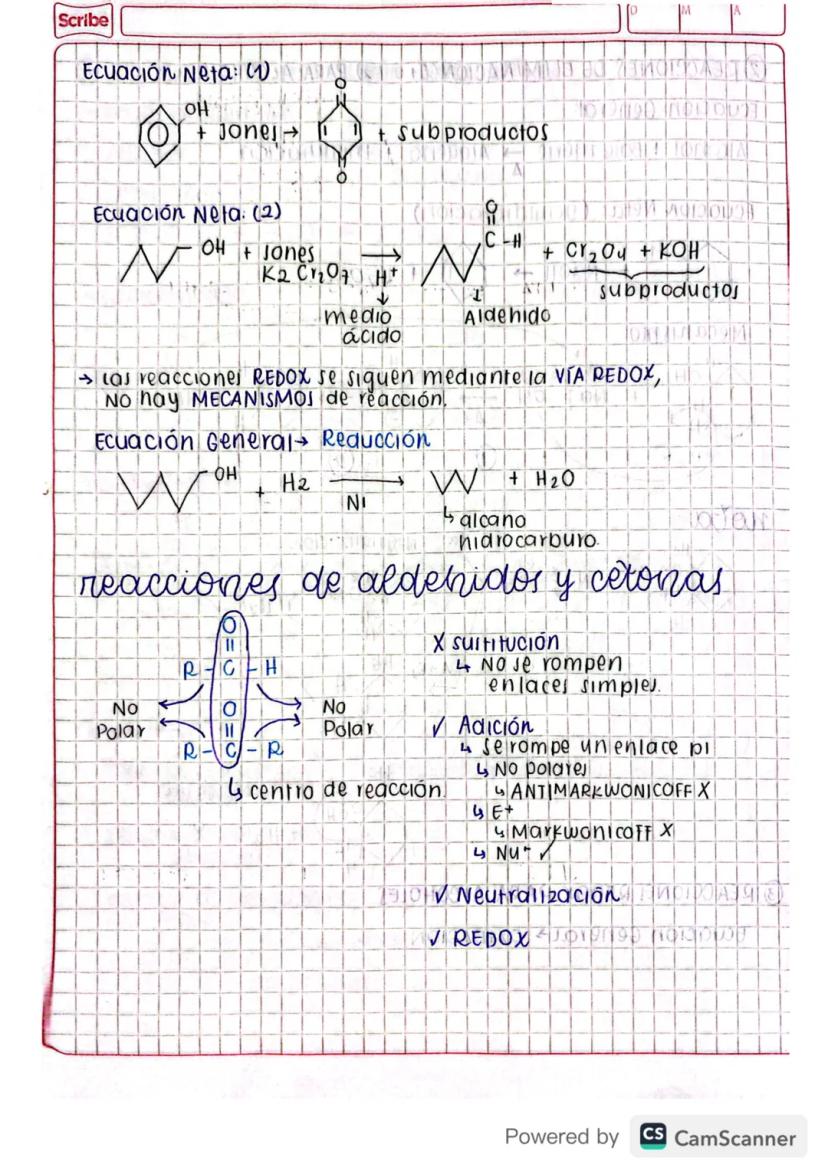 Scribe
D M A
Ecuación Neta: (1)
OH
+ Jones → O O + subproductos
Ecuación Neta: (2)
OH + Jones
K2 Cr2O7 H+
O
C-H
+ Cr2O4 + KOH
subproductos
medio
ácido
Aldehido
→ Las reacciones REDOX se siguen mediante la VÍA REDOX,
NO hay MECANISMOS de reacción.
Ecuación General → Reducción
OH + H2 → + H2O
Ni
↳ alcano
hidrocarburo.
reacciones de aldehidos y cetonas
O
R-C-H
No
Polar
O
R-C-R
No
Polar
↳ centro de reacción.
X sustitución
↳ No se rompen
enlaces simples.
✓ Adición
↳ se rompe un enlace pi
↳ No polares
↳ ANTIMARKWONICOFF X
↳ E+
↳ Markwonicoff X
↳ Nu- ✓
✓ Neutralización
✓ REDOX
Powered by CS CamScanner